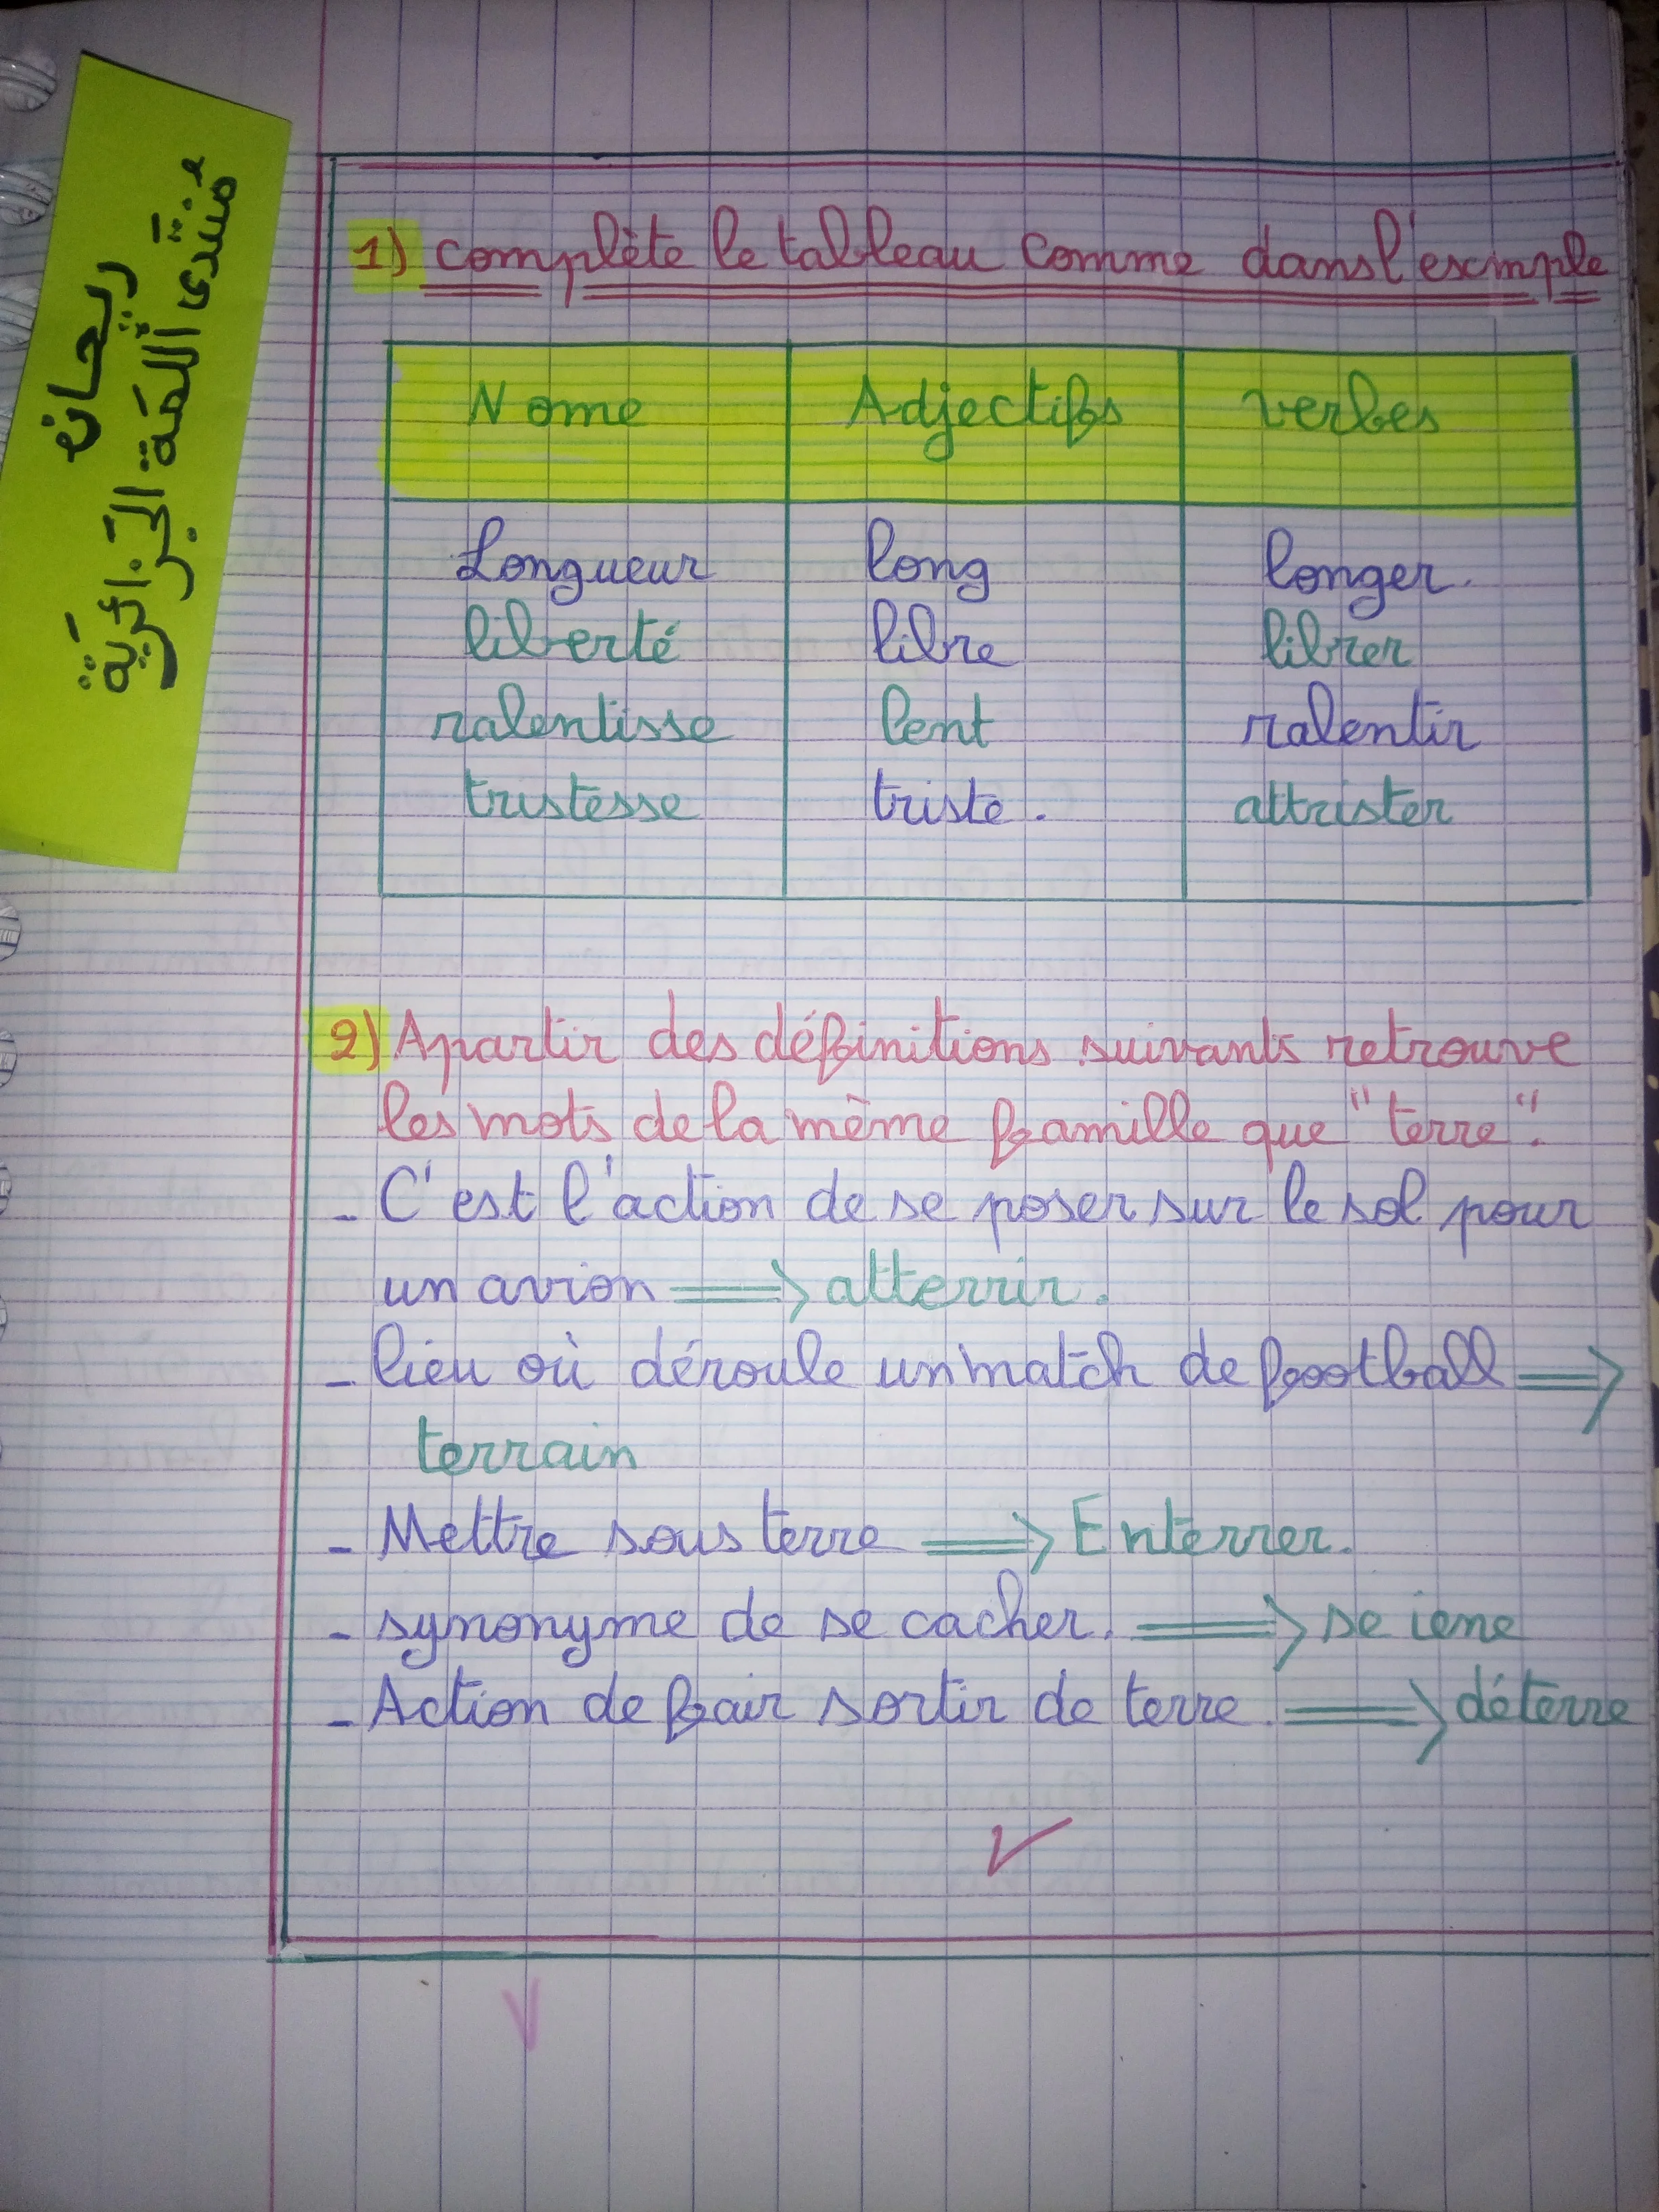 ريحانه
منتدى اللمة الجزائرية
1) complète le tableau comme dans l'exemple
Nome Adjectifs verbes
Longueur long longer.
liberté libre librer
ralentisse lent ralentir
tristesse triste. attrister
2) Apartir des définitions suivants retrouve
les mots de la même famille que "terre".
- C'est l'action de se poser sur le sol pour
un avion => atterrir.
- lieu où déroule un match de football =>
terrain
- Mettre sous terre => Enterrer.
- synonyme de se cacher. => se
- Action de fair sortir de terre. => déterre